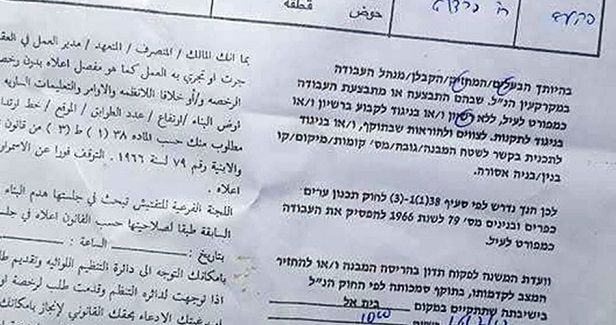 حوض
قطعة
بما انك المالك / المتصرف / المتعهد / مدير العمل في العقار
جرت او تجري به العمل كما هو مفصل اعلاه بدون رخصة
الرخصه و/أو خلافا للانظمه والاوامر والتعليمات الساريه
عرض البناء /ارتفاع / عدد الطوابق / الموقع / خط ارتداد
مطلوب منك حسب الماده ٣٨ (١) ط (٣) من قانون
والابنية رقم ٧٩ لسنة ١٩٦٦. التوقف فورا عن الاستمرار
اعلاه .
اللجنة الفرعية للتفتيش تبحث في جلستها هدم البناء
السابقة طبقا لصلاحيتها حسب القانون اعلاه في جلسة
بتاريخ : الساعة :
بامكانك التوجه الى دائرة التنظيم اللوائيه وتقديم
اذا توجهت لدائرة التنظيم وقدمت طلب لرخصة او
الادعاء بحقك القانوني لإنجاز
בהיותך הבעלים/המחזיק/הקבלן/מנהל העבודה
במקרקעין הנ"ל. שבהם התבצעה או מתבצעת העבודה
כמפורט לעיל, ללא רשיון ו/או בניגוד לקבוע ברשיון ו/או
בניגוד לתקנות. לצווים ולהוראות שבתוקף, ו/או בניגוד
לתכנית בקשר לשטח המבנה/גובה/מס' קומות/מיקום/קו
בנין/בניה אסורה.
לכן הנך נדרש לפי סעיף 38(1)(ו)-(3) לחוק תכנון ערים
כפרים ובנינים מס' 79 לשנת 1966 להפסיק את העבודה
כמפורט לעיל.
וועדת המשנה לפקוח תדון בהריסת המבנה ו/או להחזיר
המצב לקדמותו, בתוקף סמכותה לפי החוק הנ"ל
בישיבתה שתתקיים במקום בית אל